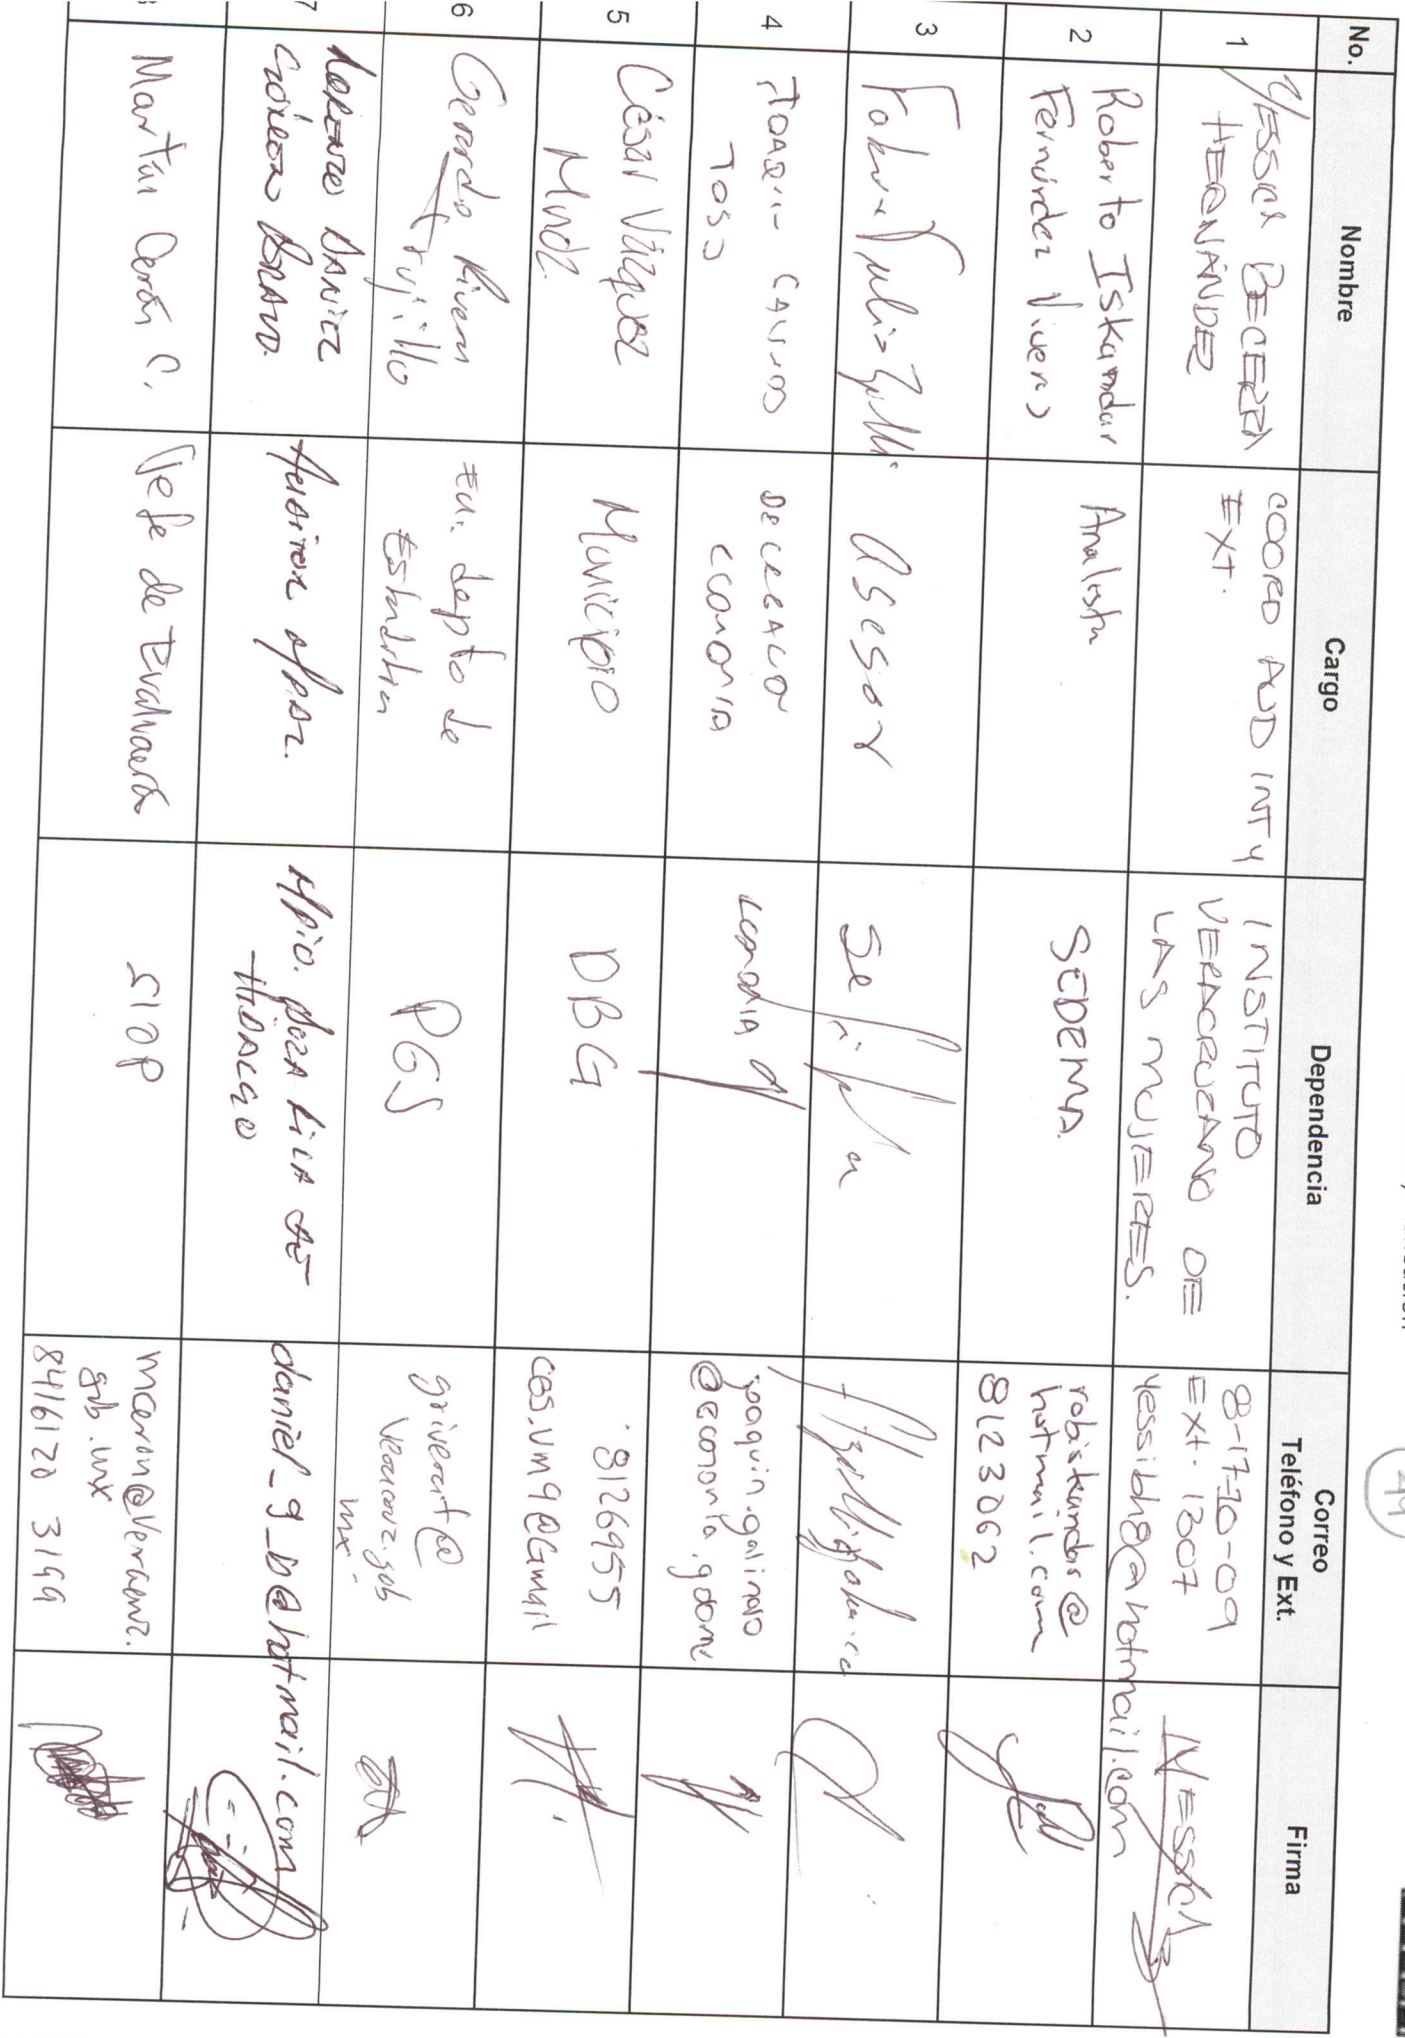 No.
Nombre
Cargo
Dependencia
Correo
Teléfono y Ext.
Firma
1
YESSICA BECERRA
HERNÁNDEZ
COORD AUD INT Y
EXT.
INSTITUTO
VERACRUZANO DE
LAS MUJERES.
8-17-10-09
EXT. 13007
yessibh8@hotmail.com
YESSICA B
2
Roberto Iskandar
Fernández Viveros
Analista
SEDEMA.
robiskandar@
hotmail.com
8123062
3
Asesor
Sefiplan
4
JOAQUIN
ECONOMIA
ECONOMIA
joaquin.galindo
@economia.
5
César Vázquez
Mndz.
Municipio
DBG
8126955
ces.vm9@Gmail
6
Gerardo Rivera
Trujillo
depto de
Estadística
PGJ
griverat@
veracruz.gob
mx
7
LORENZO DANIEL
BRAVO.
AUDITOR
Mpio. POZA RICA DE
HIDALGO
daniel_g_b@hotmail.com
Martín Cerón C.
Jefe de
SIOP
mceron@veracruz.
gob.mx
8416120 3199